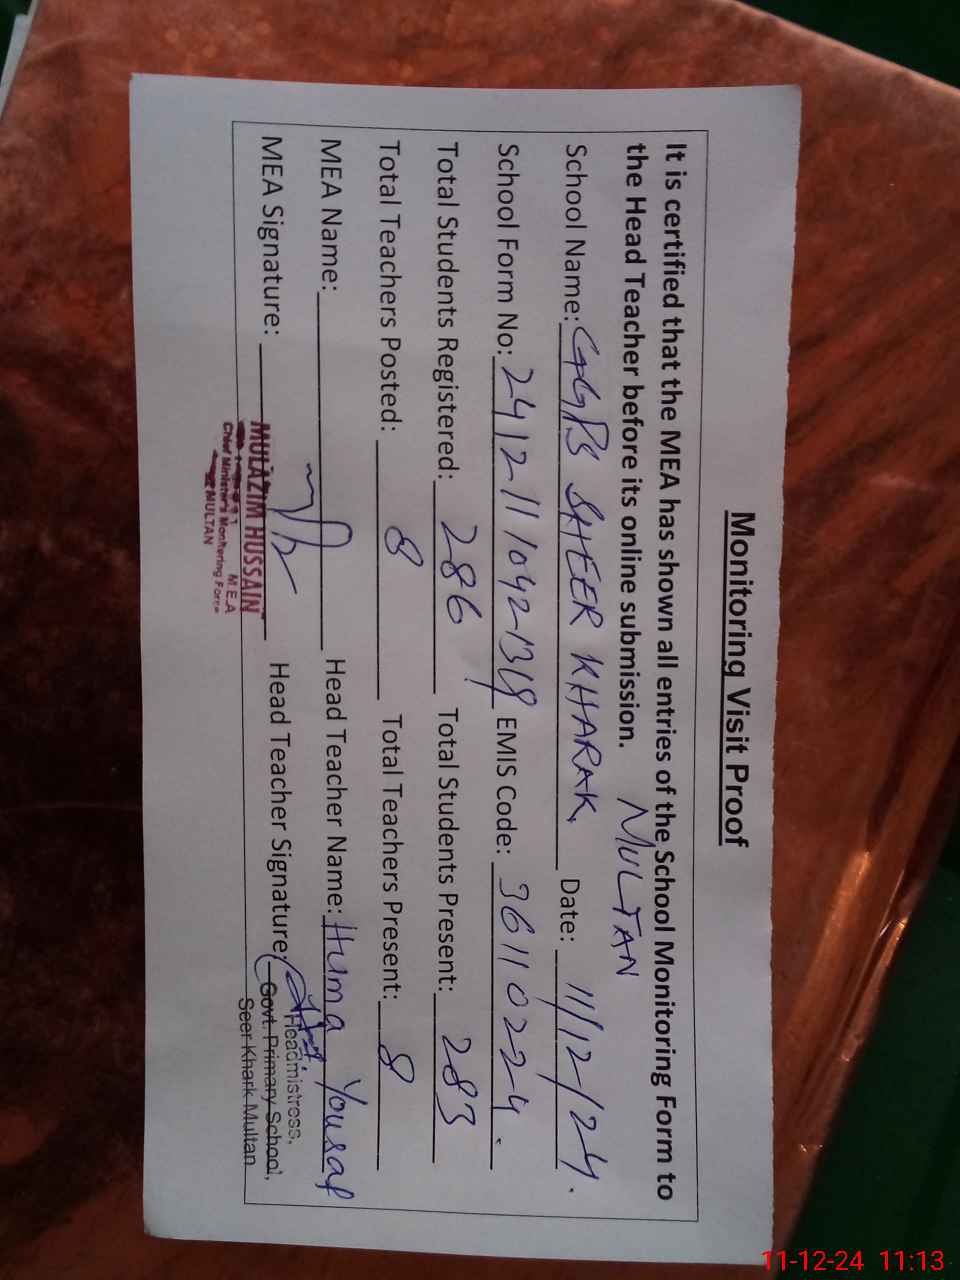 Monitoring Visit Proof
It is certified that the MEA has shown all entries of the School Monitoring Form to
the Head Teacher before its online submission. MULTAN
School Name: GGPS SHEER KHARAK, Date: 11/12/24.
School Form No: EMIS Code: 36110224
Total Students Registered: 286 Total Students Present: 283
Total Teachers Posted: 8 Total Teachers Present: 8
MEA Name: Head Teacher Name: Huma Yousaf
MEA Signature: Head Teacher Signature:
MULAZIM HUSSAIN
M.E.A
Chief Minister's Monitoring Force
MULTAN
Headmistress,
Govt. Primary School,
Seer Khark Multan
11-12-24 11:13